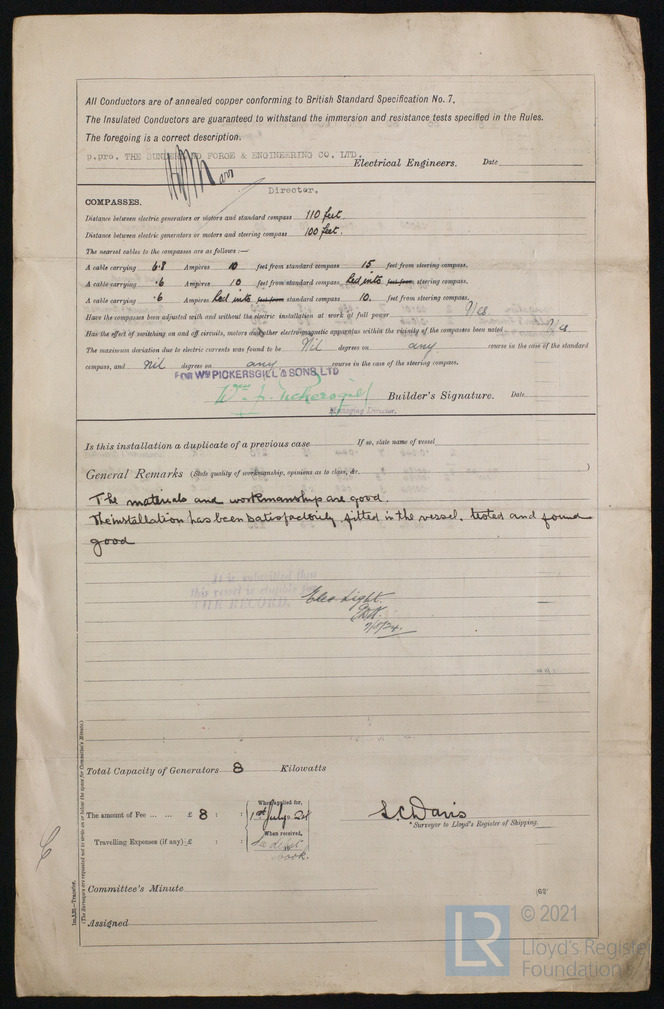 All Conductors are of annealed copper conforming to British Standard Specification No. 7.
The Insulated Conductors are guaranteed to withstand the immersion and resistance tests specified in the Rules.
The foregoing is a correct description.
p.pro. THE SUNDERLAND FORGE & ENGINEERING CO. LTD. Electrical Engineers. Date
Director.
COMPASSES.
Distance between electric generators or motors and standard compass 110 feet
Distance between electric generators or motors and steering compass 100 feet.
The nearest cables to the compasses are as follows :—
A cable carrying 6.8 Ampères 10 feet from standard compass 15 feet from steering compass.
A cable carrying .6 Ampères 10 feet from standard compass led into feet from steering compass.
A cable carrying .6 Ampères led into feet from standard compass 10. feet from steering compass.
Have the compasses been adjusted with and without the electric installation at work at full power Yes
Has the effect of switching on and off circuits, motors and other electro-magnetic apparatus within the vicinity of the compasses been noted Yes.
The maximum deviation due to electric currents was found to be Nil degrees on any course in the case of the standard
compass, and nil degrees on any course in the case of the steering compass.
FOR WM PICKERSGILL & SONS, LTD
Wm J. Pickersgill Builder's Signature. Date
Managing Director.
Is this installation a duplicate of a previous case If so, state name of vessel
General Remarks (State quality of workmanship, opinions as to class, &c. )
The materials and workmanship are good.
The installation has been satisfactorily fitted in the vessel. tested and found
good
It is submitted that
this vessel is eligible for
THE RECORD.
Elec Light.
Total Capacity of Generators 8 Kilowatts
The amount of Fee ... ... £ 8 : : When applied for,
1st July 24
When received,
Travelling Expenses (if any) £ : :
book.
S.C. Davis
* Surveyor to Lloyd's Register of Shipping.
Committee's Minute
Assigned
(The Surveyors are requested not to write on or below the space for Committee's Minute.)
© 2021
LR
Lloyd's Register
Foundation